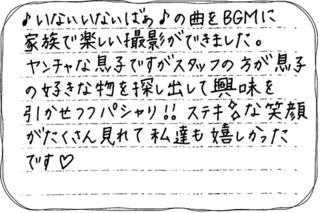 ♪いないいないばぁ♪の曲をBGMに
家族で楽しい撮影ができました。
ヤンチャな息子ですがスタッフの方が息子
の好きな物を探し出して興味を
引かせつつパシャリ!! ステキな笑顔
がたくさん見れて私達も嬉しかった
です♡